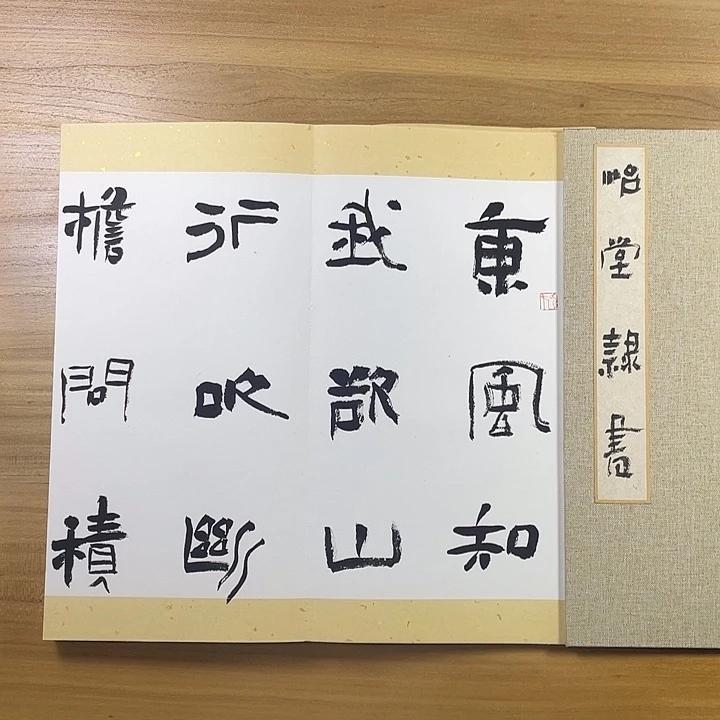 堂隸書
東風知
我欲山
行吹斷
檐間積